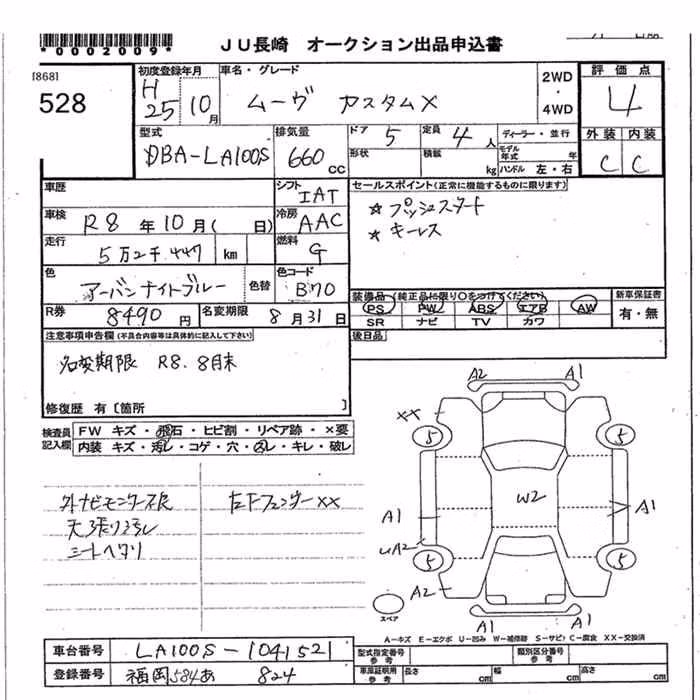 *0002009*
JU長崎 オークション出品申込書
[868]
528
初度登録年月
H25 10月
車名・グレード
ムーヴ カスタムX
2WD
・
4WD
評価点
4
外装 内装
C C
型式
DBA-LA100S
排気量
660 CC
ドア 5
定員 4人
形状
積載 kg
ディーラー・並行
モデル年式 年
ハンドル 左・右
車歴
シフト
IAT
車検 R8年10月( 日)
冷房
AAC
走行 5万2千447 km
燃料
G
色 アーバンナイトブルー
色替
色コード
B70
R券 8490円
名変期限 8月31日
セールスポイント(正常に機能するものに限ります)
☆ プッシュスタート
☆ キーレス
装備品 (純正品に限り○をつけてください)
新車保証書
PS PW ABS エアB AW
SR ナビ TV カワ
有・無
後日品
注意事項申告欄(不具合内容等は具体的に記入して下さい)
名変期限 R8.8月末
修復歴 有〔箇所 〕
検査員記入欄
FW キズ・飛石・ヒビ割・リペア跡・×要
内装 キズ・汚レ・コゲ・穴・スレ・キレ・破レ
外ナビモニター不良
天張り汚レ
シートヘタリ
左Fフェンダーxx
A2 A1
xx
5 5
W2
A1 A1
UA2
5 5
A2
A1 A1
スペア
A-キズ E-エクボ U-凹み W-補修跡 S-サビ C-腐食 XX-交換済
車台番号 LA100S-1041521
登録番号 福岡584あ 824
型式指定番号 参考
類別区分番号 参考
車庫証明用 参考
長さ cm 幅 cm 高さ cm